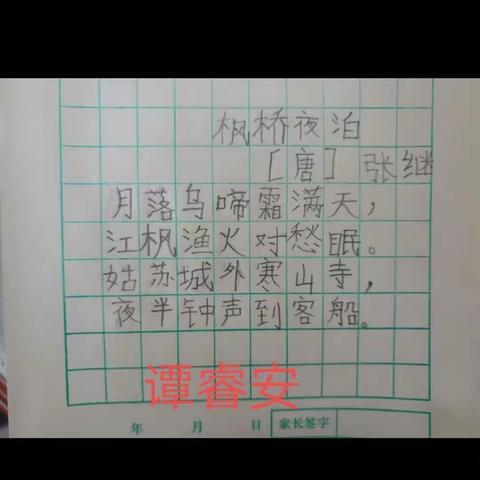 枫桥夜泊
[唐] 张继
月落乌啼霜满天，
江枫渔火对愁眠。
姑苏城外寒山寺，
夜半钟声到客船。
谭睿安
年 月 日 家长签字